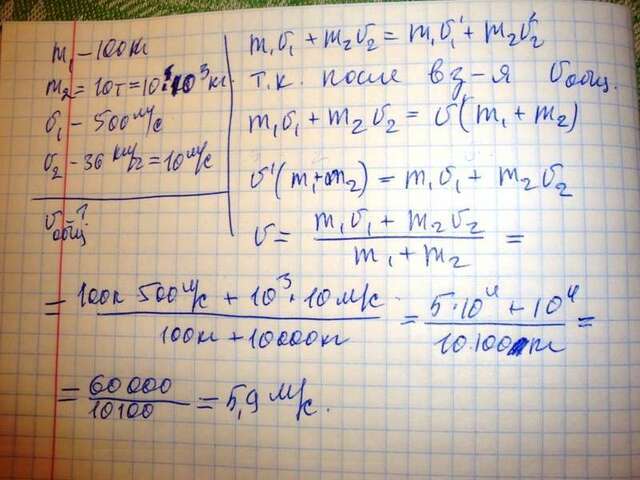 m₁ – 100 кг
m₂ = 10т = 10·10³ кг
υ₁ – 500 м/с
υ₂ – 36 км/г = 10 м/с
υобщ. – ?
m₁υ₁ + m₂υ₂ = m₁υ₁' + m₂υ₂'
т.к. после вз-я υобщ.
m₁υ₁ + m₂υ₂ = υ(m₁ + m₂)
υ'(m₁+m₂) = m₁υ₁ + m₂υ₂
υ = (m₁υ₁ + m₂υ₂)/(m₁ + m₂) =
= (100к 500 м/с + 10³·10 м/с)/(100кг + 10000кг) = (5·10⁴ + 10⁴)/(10.100 кг) =
= 60000/10100 = 5,9 м/с.